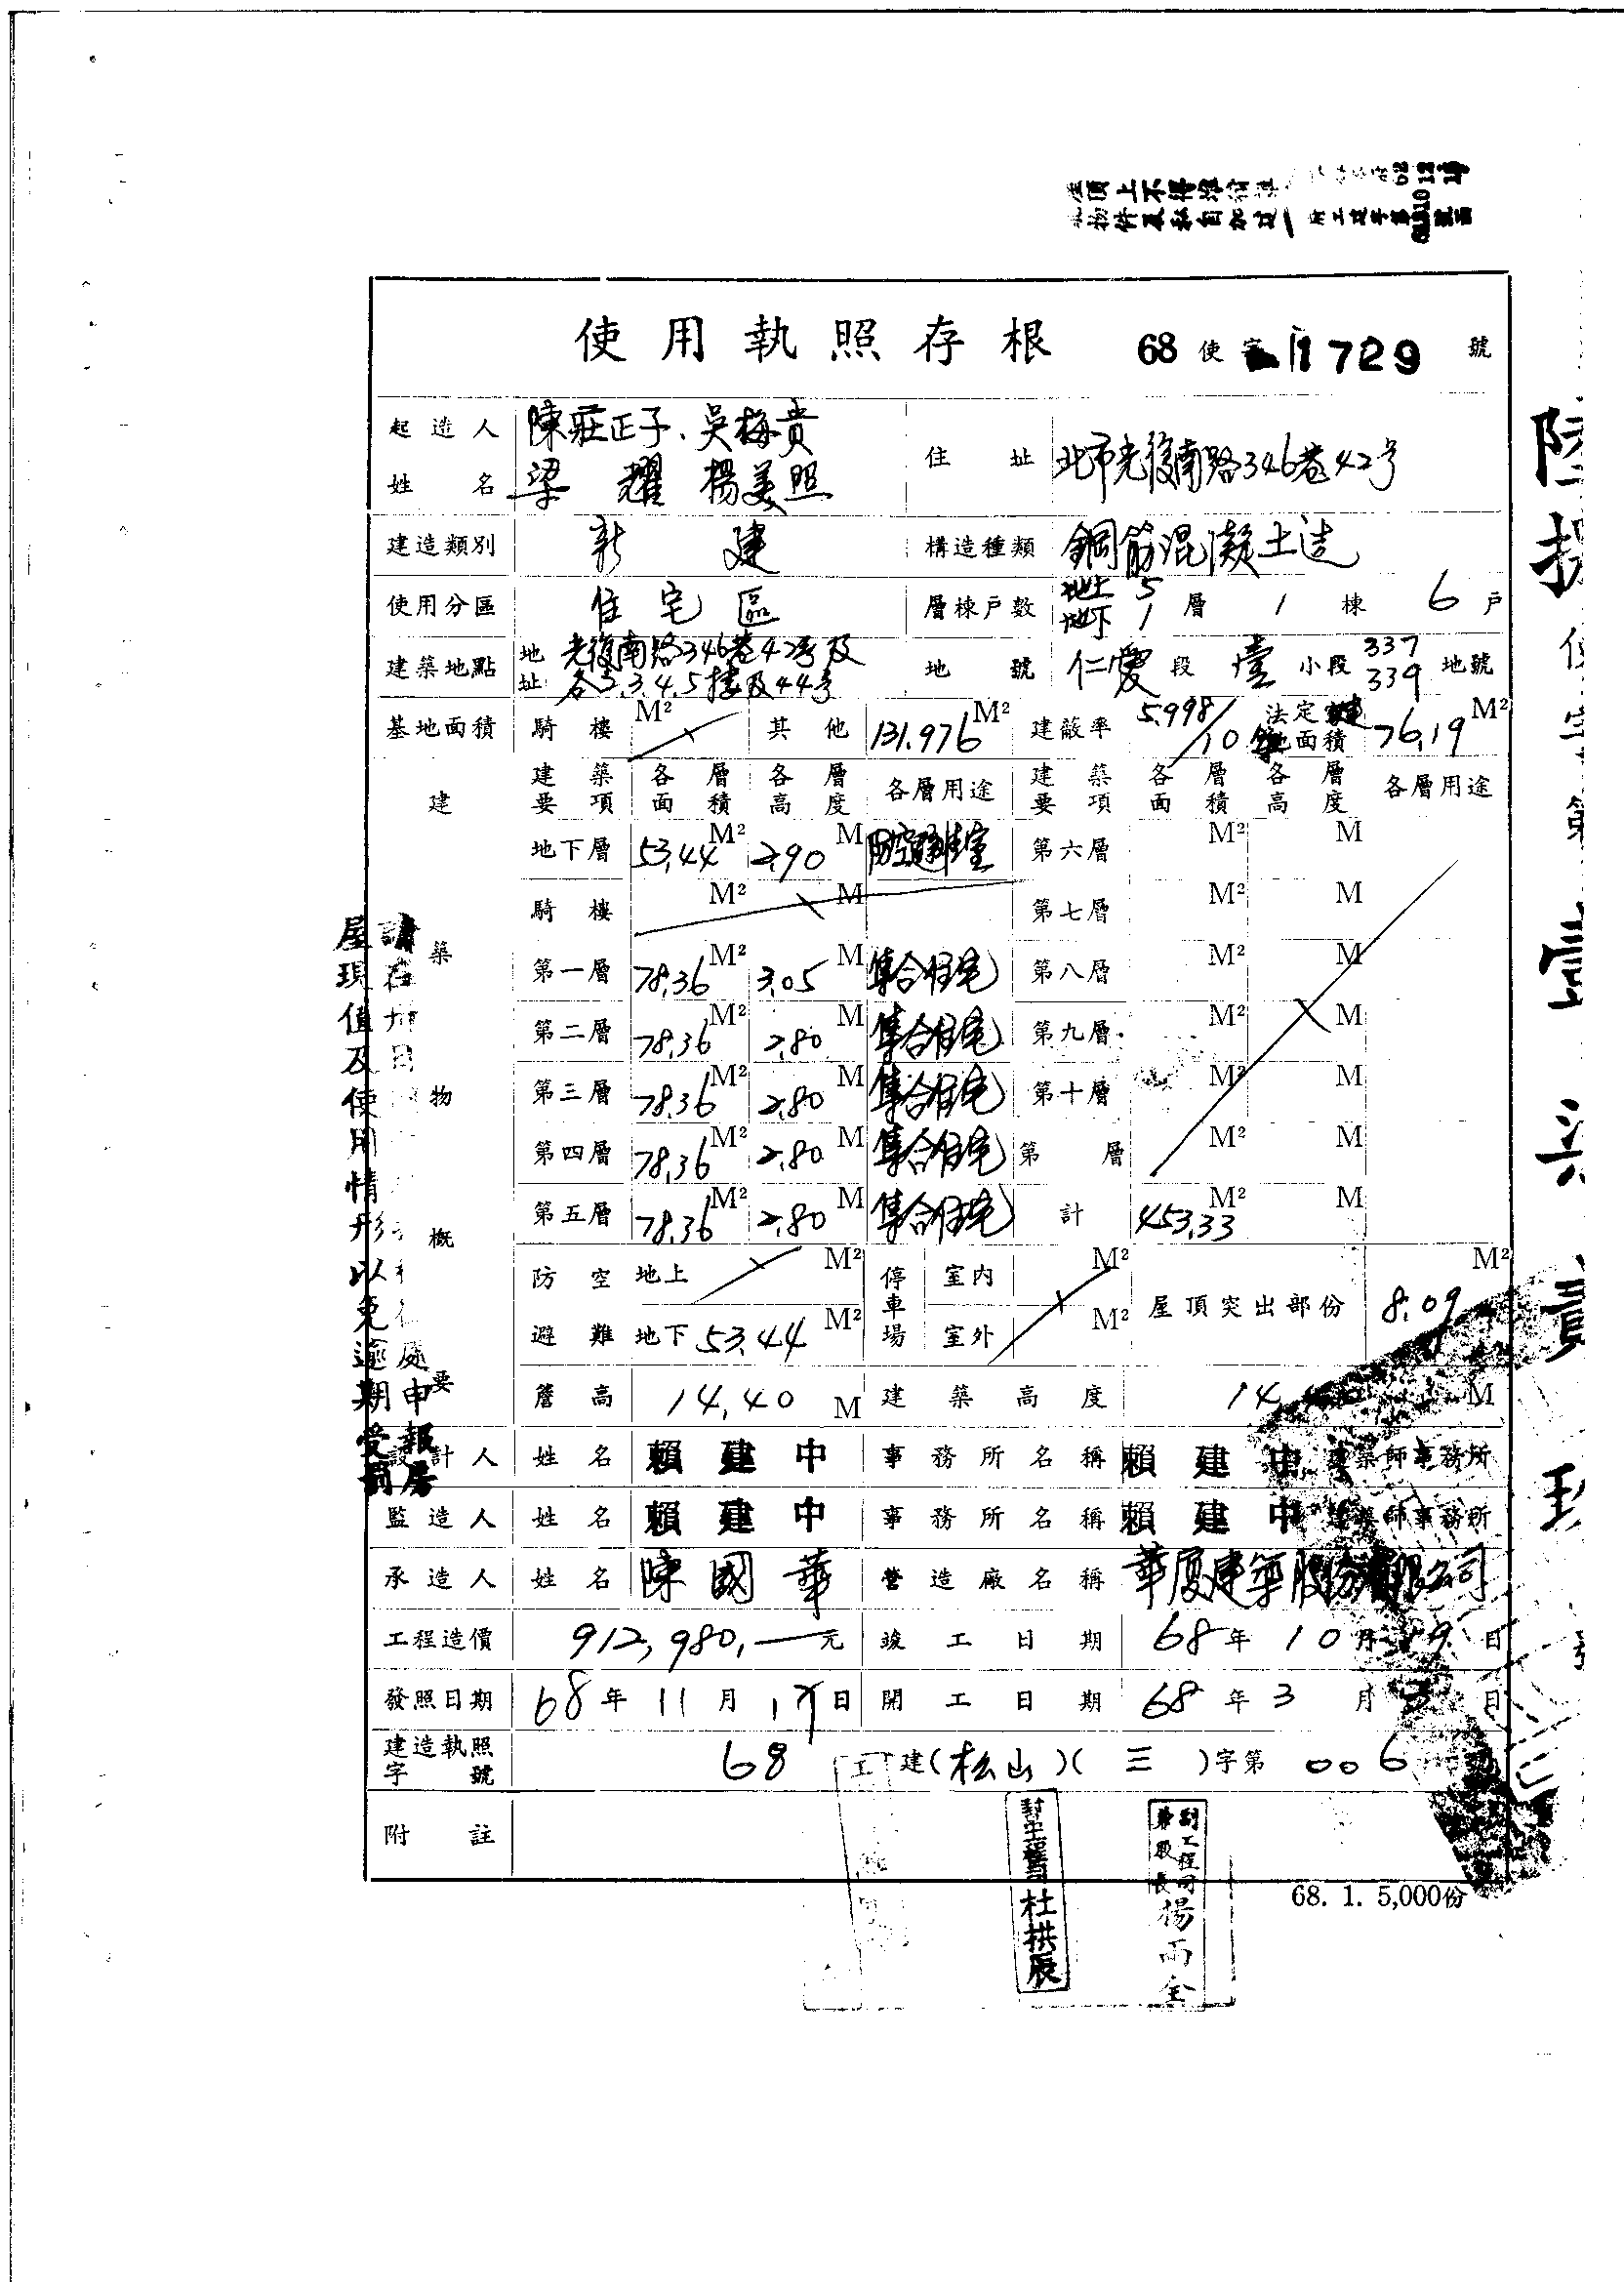 屋頂上不得
使用執照存根 68 使字 1729 號
起造人姓名 陳莊正子、吳梅貴
梁 耀 楊美照
住址 北市光復南路346巷42号
建造類別 新建 構造種類 鋼筋混凝土造
使用分區 住宅區 層棟戶數 地上 5 地下 1 層 1 棟 6 戶
建築地點 地址 光復南路346巷42号及
各2.3.4.5樓及44号
地號 仁愛 段 壹 小段 337 339 地號
基地面積 騎樓 M² 其他 131.976 M² 建蔽率 5.998/10 法定空地面積 76.19 M²
建築物概要
建築要項 各層面積 各層高度 各層用途 建築要項 各層面積 各層高度 各層用途
地下層 53.44 M² 2.90 M 防空避難室 第六層 M² M
騎樓 M² M 第七層 M² M
第一層 78.36 M² 3.05 M 集合住宅 第八層 M² M
第二層 78.36 M² 2.80 M 集合住宅 第九層 M² M
第三層 78.36 M² 2.80 M 集合住宅 第十層 M² M
第四層 78.36 M² 2.80 M 集合住宅 第 層 M² M
第五層 78.36 M² 2.80 M 集合住宅 計 453.33 M² M
防空避難 地上 M² 地下 53.44 M² 停車場 室內 M² 室外 M² 屋頂突出部份 8.09 M²
簷高 14.40 M 建築高度 14. M
設計人 姓名 賴建中 事務所名稱 賴建中建築師事務所
監造人 姓名 賴建中 事務所名稱 賴建中建築師事務所
承造人 姓名 陳國華 營造廠名稱 華廈建築股份有限公司
工程造價 912,980.— 元 竣工日期 68 年 10 月 19 日
發照日期 68 年 11 月 17 日 開工日期 68 年 3 月 日
建造執照字號 68 工建(松山)(三)字第 006
附註
68. 1. 5,000份
屋現值及使用情形以免逾期受罰
處申報房
杜拱辰
副工程司
兼股長
楊雨全